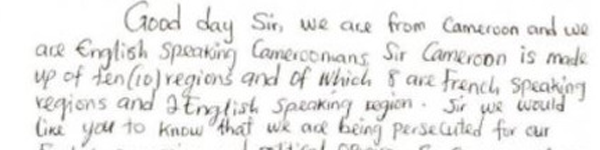 Good day Sir, we are from Cameroon and we
are English Speaking Cameroonians Sir Cameroon is made
up of ten(10) regions and of which 8 are French Speaking
regions and 2 English Speaking region. Sir we would
like you to know that we are being persecuted for our